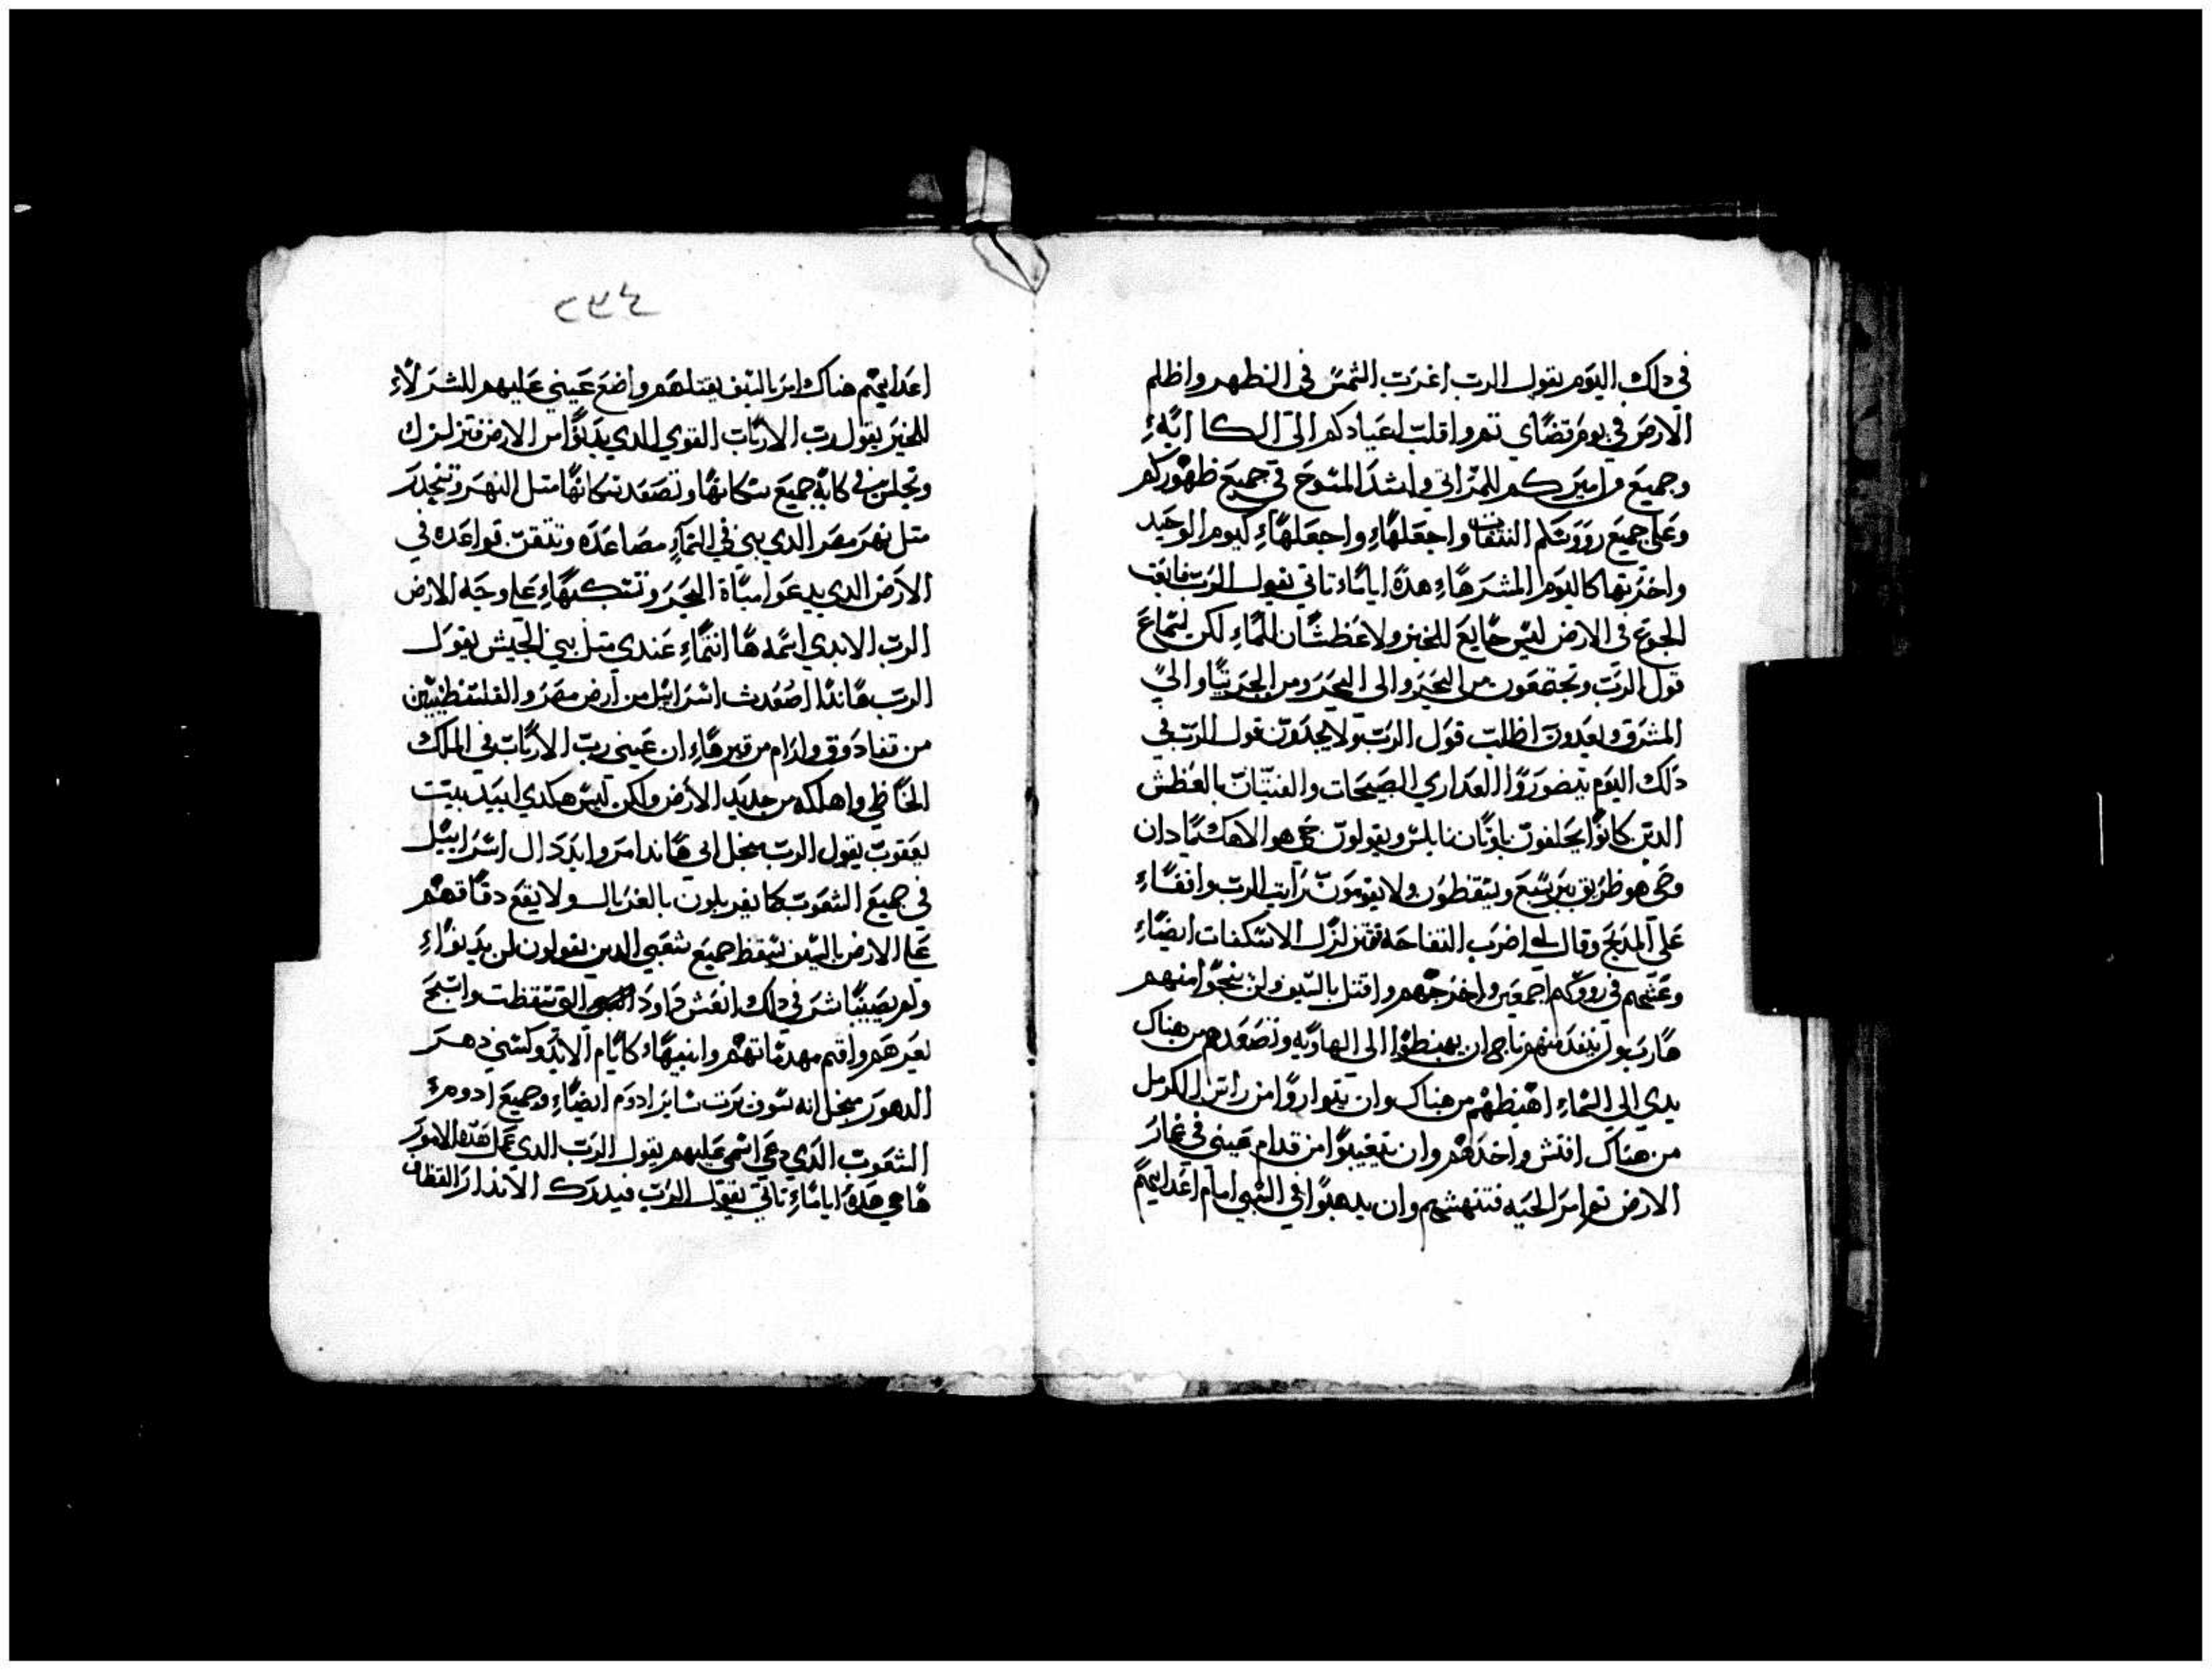 في دلك اليوم يقول الرب اغرب الشمس في النطهر واظلم
الارض في يوم تضاي نهر واقلب اعيادكم الى الكاابه
وجميع مزاميركم للمراتي واشد المسوح في جميع ظهوركم
وعلى جميع رووسكم النتفات واجعلها واجعلها كيوم الوحيد
واخرتها كاليوم المشرها هده اياما تاتي يقول الرب فابعت
الجوع في الارض ليس جايع للخبز ولا عظشان للماء لكن لسماع
قول الرب وتجتمعون من البحر والى البحر ومن الجربيا والى
المشرق يعدون اظلب قول الرب ولا يجدون قول الرب في
دلك اليوم يتضورو العداري الصبيحات والفتيان بالعظش
الدين كانوا يحلفون باوتان نابلس ويقولون حي هو الاهك يا دان
وحي هو طريق بير سبع ويسقطون ولا يقومون رايت الرب واقفا
على المدبح وقال لي اضرب التفاحه فتتزلزل الاسكفات ايضا
وعشهم في رووسهم اجمعين واخرجهم واقتل بالسيف ولن ينجوا منهم
هارب ولن ينفد منهم ناجي ان يهبطوا الى الهاويه وتصعدهم من هناك
يدي الى السماء اهبطهم من هناك وان يتواروا من راس الكرمل
من هناك افتش واخدهم وان تغيبوا من قدام عيني في غار
الارض نهر امر الحيه فتنهشهم وان يدهبوا في السبي امام اعدايهم
٢٧٢
اعدايهم هناك امر بالسيف يقتلهم واضع عيني عليهم للشر لاء
للخير يقول رب الارباب القوي الدي يدنوا من الارض فتزلزل
وتجلس في كابه جميع سكانها وتصعد سكانها متل النهر وتنحدر
متل نهر مصر الدي يبني في السماء مصاعده وتتقن قواعده في
الارض الدي يدعوا مياة البحر وتسكبها على وجه الارض
الرب الابدي اسمه ها انتماء عندي متل بني الحبش يقول
الرب هاندا اصعدت اسراييل من ارض مصر والفلسطينيين
من قفادوق وارام من قبرها ان عيني رب الارباب في الملك
الخاظي واهلكه من جديد الارض ولكن ليس هكدي ابيد بيت
يعقوب يقول الرب سخل اني هاندا امر وابدد ال اسراييل
في جميع الشعوب كما يغربلون بالغربال ولا يقع دقاقهم
على الارض بالسيف يسقط جميع شعبي الدين يقولون لن يدنوا
ولم يصيبنا شر في دلك انعش داود التي سقطت واسبح
نعيرهم واقم مهدماتهم وابنيها كايام الابد وكسني دهر
الدهور سخل انه سوف يرت ساير ادوم ايضا وجميع ادوم
الشعوب الدي دعي اسمي عليهم يقول الرب الدي عمل هده الامور
ها هي هده اياما تاتي يقول الرب فيدرك الاندار القظاف